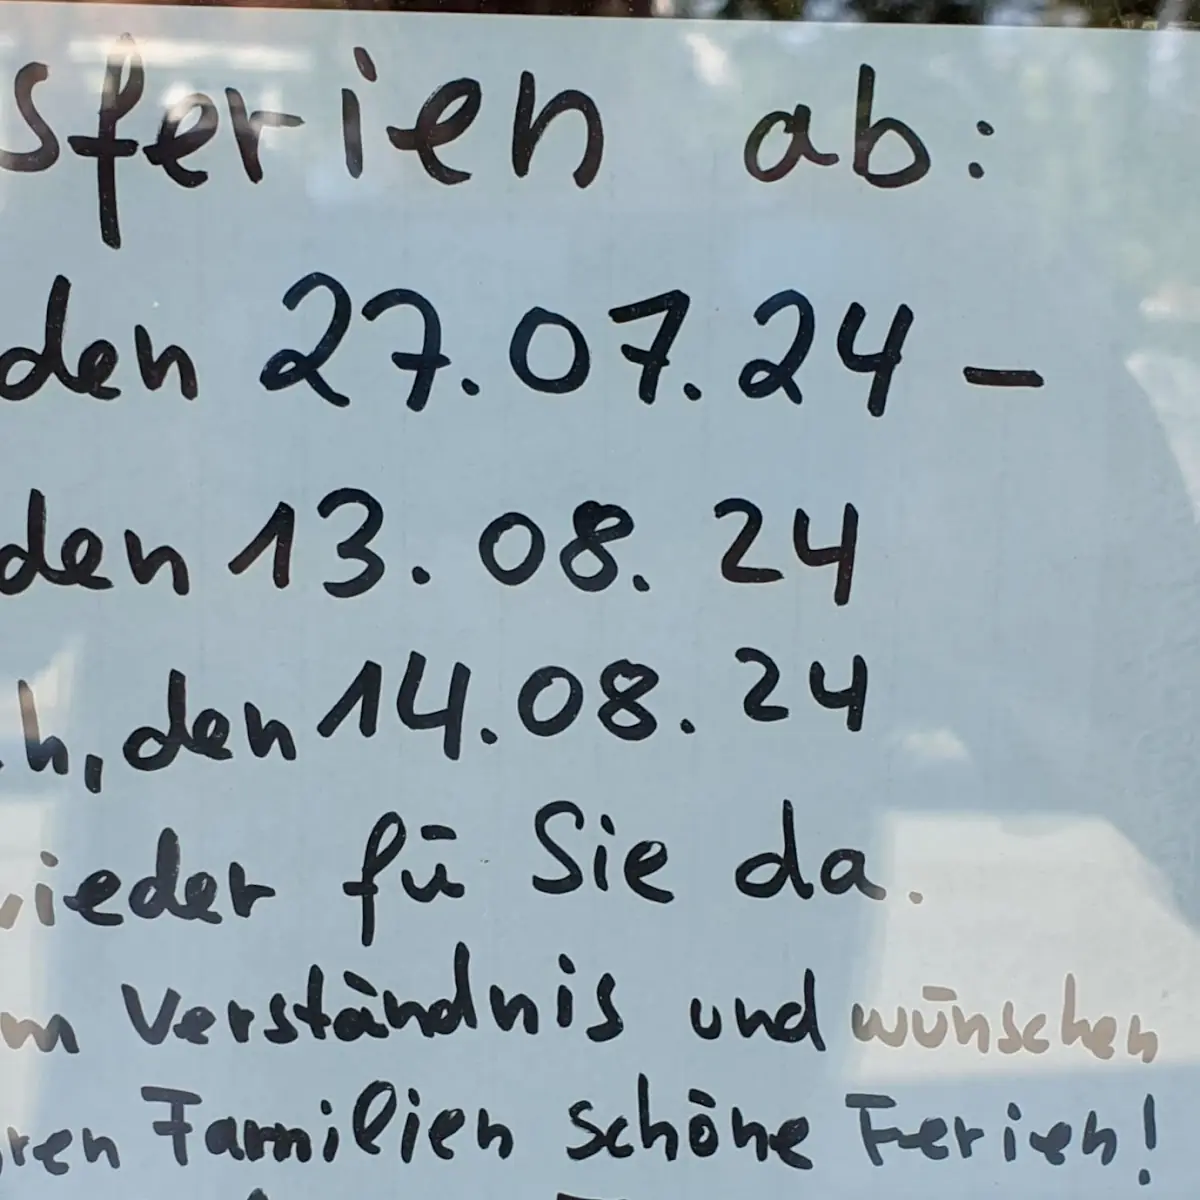 sferien ab:
den 27.07.24 -
den 13.08.24
h, den 14.08.24
ieder fü Sie da.
m Verständnis und wünschen
ren Familien schöne Ferien!